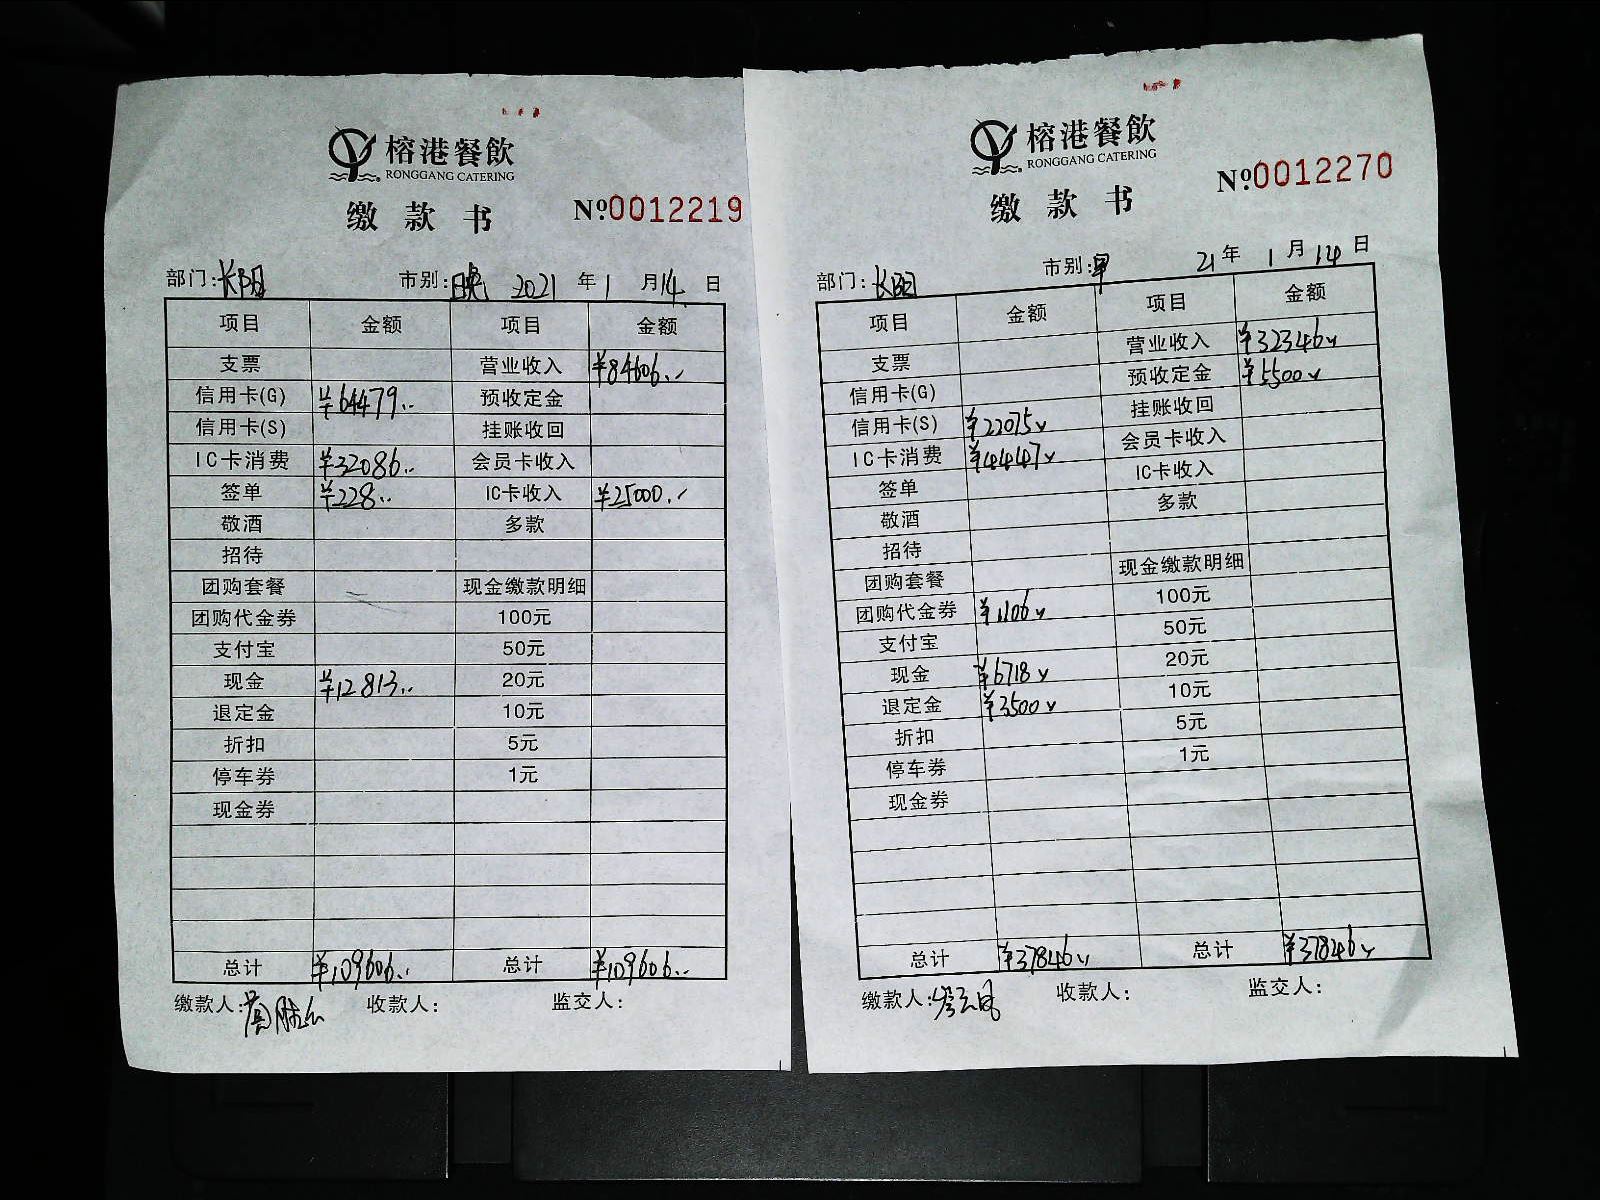 榕港餐飲
RONGGANG CATERING
缴款书 Nº0012219
部门:长阳 市别:晚 2021年1月14日
项目 金额 项目 金额
支票 营业收入 ¥84606.-
信用卡(G) ¥64479.- 预收定金
信用卡(S) 挂账收回
IC卡消费 ¥32086.- 会员卡收入
签单 ¥228.- IC卡收入 ¥25000.-
敬酒 多款
招待
团购套餐 现金缴款明细
团购代金券 100元
支付宝 50元
现金 ¥12813.- 20元
退定金 10元
折扣 5元
停车券 1元
现金券
总计 ¥109606.- 总计 ¥109606.-
缴款人: 收款人: 监交人:
榕港餐飲
RONGGANG CATERING
缴款书 Nº0012270
部门:长阳 市别:早 21年1月14日
项目 金额 项目 金额
支票 营业收入 ¥32346
信用卡(G) 预收定金 ¥5500
信用卡(S) ¥22075 挂账收回
IC卡消费 ¥4447 会员卡收入
签单 IC卡收入
敬酒 多款
招待
团购套餐 现金缴款明细
团购代金券 ¥1106 100元
支付宝 50元
现金 ¥6718 20元
退定金 ¥3500 10元
折扣 5元
停车券 1元
现金券
总计 ¥37846 总计 ¥37846
缴款人: 收款人: 监交人: